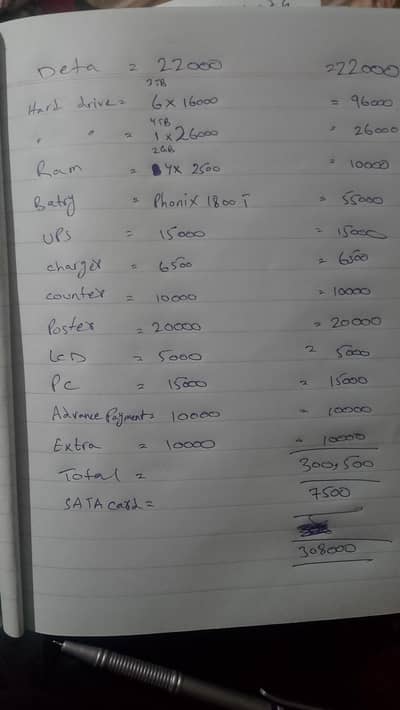 Deta = 22000 = 22000
2TB
Hard drive = 6 x 16000 = 96000
4TB
" " = 1 x 26000 = 26000
2GB
Ram = 4x 2500 = 10000
Batry = Phonix 1800 T = 55000
UPS = 15000 = 15000
charger = 6500 = 6500
counter = 10000 = 10000
Poster = 20000 = 20000
LCD = 5000 = 5000
PC = 15000 = 15000
Advance Payment = 10000 = 10000
Extra = 10000 = 10000
Total = 300,500
SATA card = 7500
308000